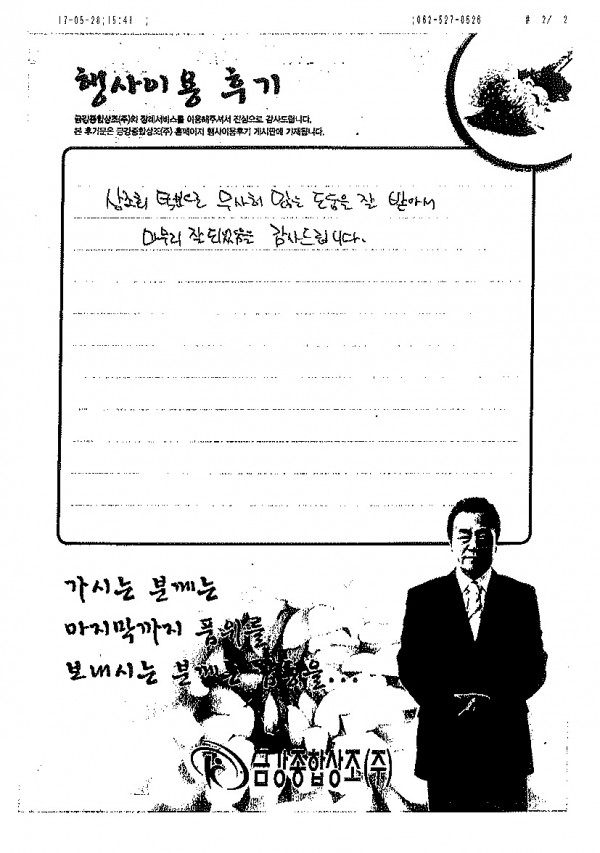 17-05-28;15:41 ;
;062-527-0526 # 2/ 2
행사이용 후기
금강종합상조(주)의 장례서비스를 이용해주셔서 진심으로 감사드립니다.
본 후기문은 금강종합상조(주) 홈페이지 행사이용후기 게시판에 기재됩니다.
상조회 덕분으로 무사히 많은 도움을 잘 받아서
마무리 잘 되었음는 감사드립니다.
가시는 분께는
마지막까지 품위를
보내시는 분께는 을...
금강종합상조(주)